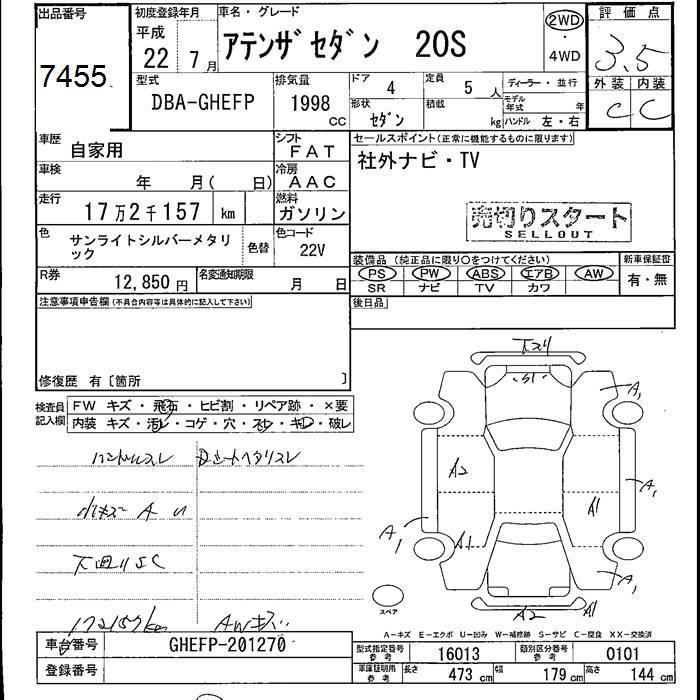 出品番号
7455
初度登録年月
平成
22年 7月
車名・グレード
アテンザセダン 20S
2WD
・
4WD
評価点
3.5
外装 内装
C C
型式
DBA-GHEFP
排気量
1998 cc
ドア 4
定員 5 人
形状 セダン
積載 kg
ディーラー・並行
モデル年式 年
ハンドル 左・右
車歴
自家用
シフト
FAT
セールスポイント(正常に機能するものに限ります)
社外ナビ・TV
車検
年 月( 日)
冷房
AAC
走行
17万2千157 km
燃料
ガソリン
売切りスタート
SELLOUT
色
サンライトシルバーメタリック
色替
色コード
22V
装備品(純正品に限り○をつけてください)
新車保証書
PS PW ABS エアB AW
SR ナビ TV カワ
有・無
R券
12,850円
名変通知期限
月 日
後日品
注意事項申告欄(不具合内容等は具体的に記入して下さい)
修復歴 有〔箇所 〕
検査員記入欄
FW キズ・飛石・ヒビ割・リペア跡・×要
内装 キズ・汚レ・コゲ・穴・スレ・キレ・破レ
ハンドルスレ
Dシートヘタリスレ
小キズ A U
下廻りSC
172157km
AWキズ
下スリ
S1
A1
A2
A1
A1
A1
A1
A1
A2
A1
スペア
A-キズ E-エクボ U-凹み W-補修跡 S-サビ C-腐食 XX-交換済
車台番号
GHEFP-201270
登録番号
型式指定番号 参考
16013
類別区分番号 参考
0101
車庫証明用 参考
長さ 473 cm
幅 179 cm
高さ 144 cm